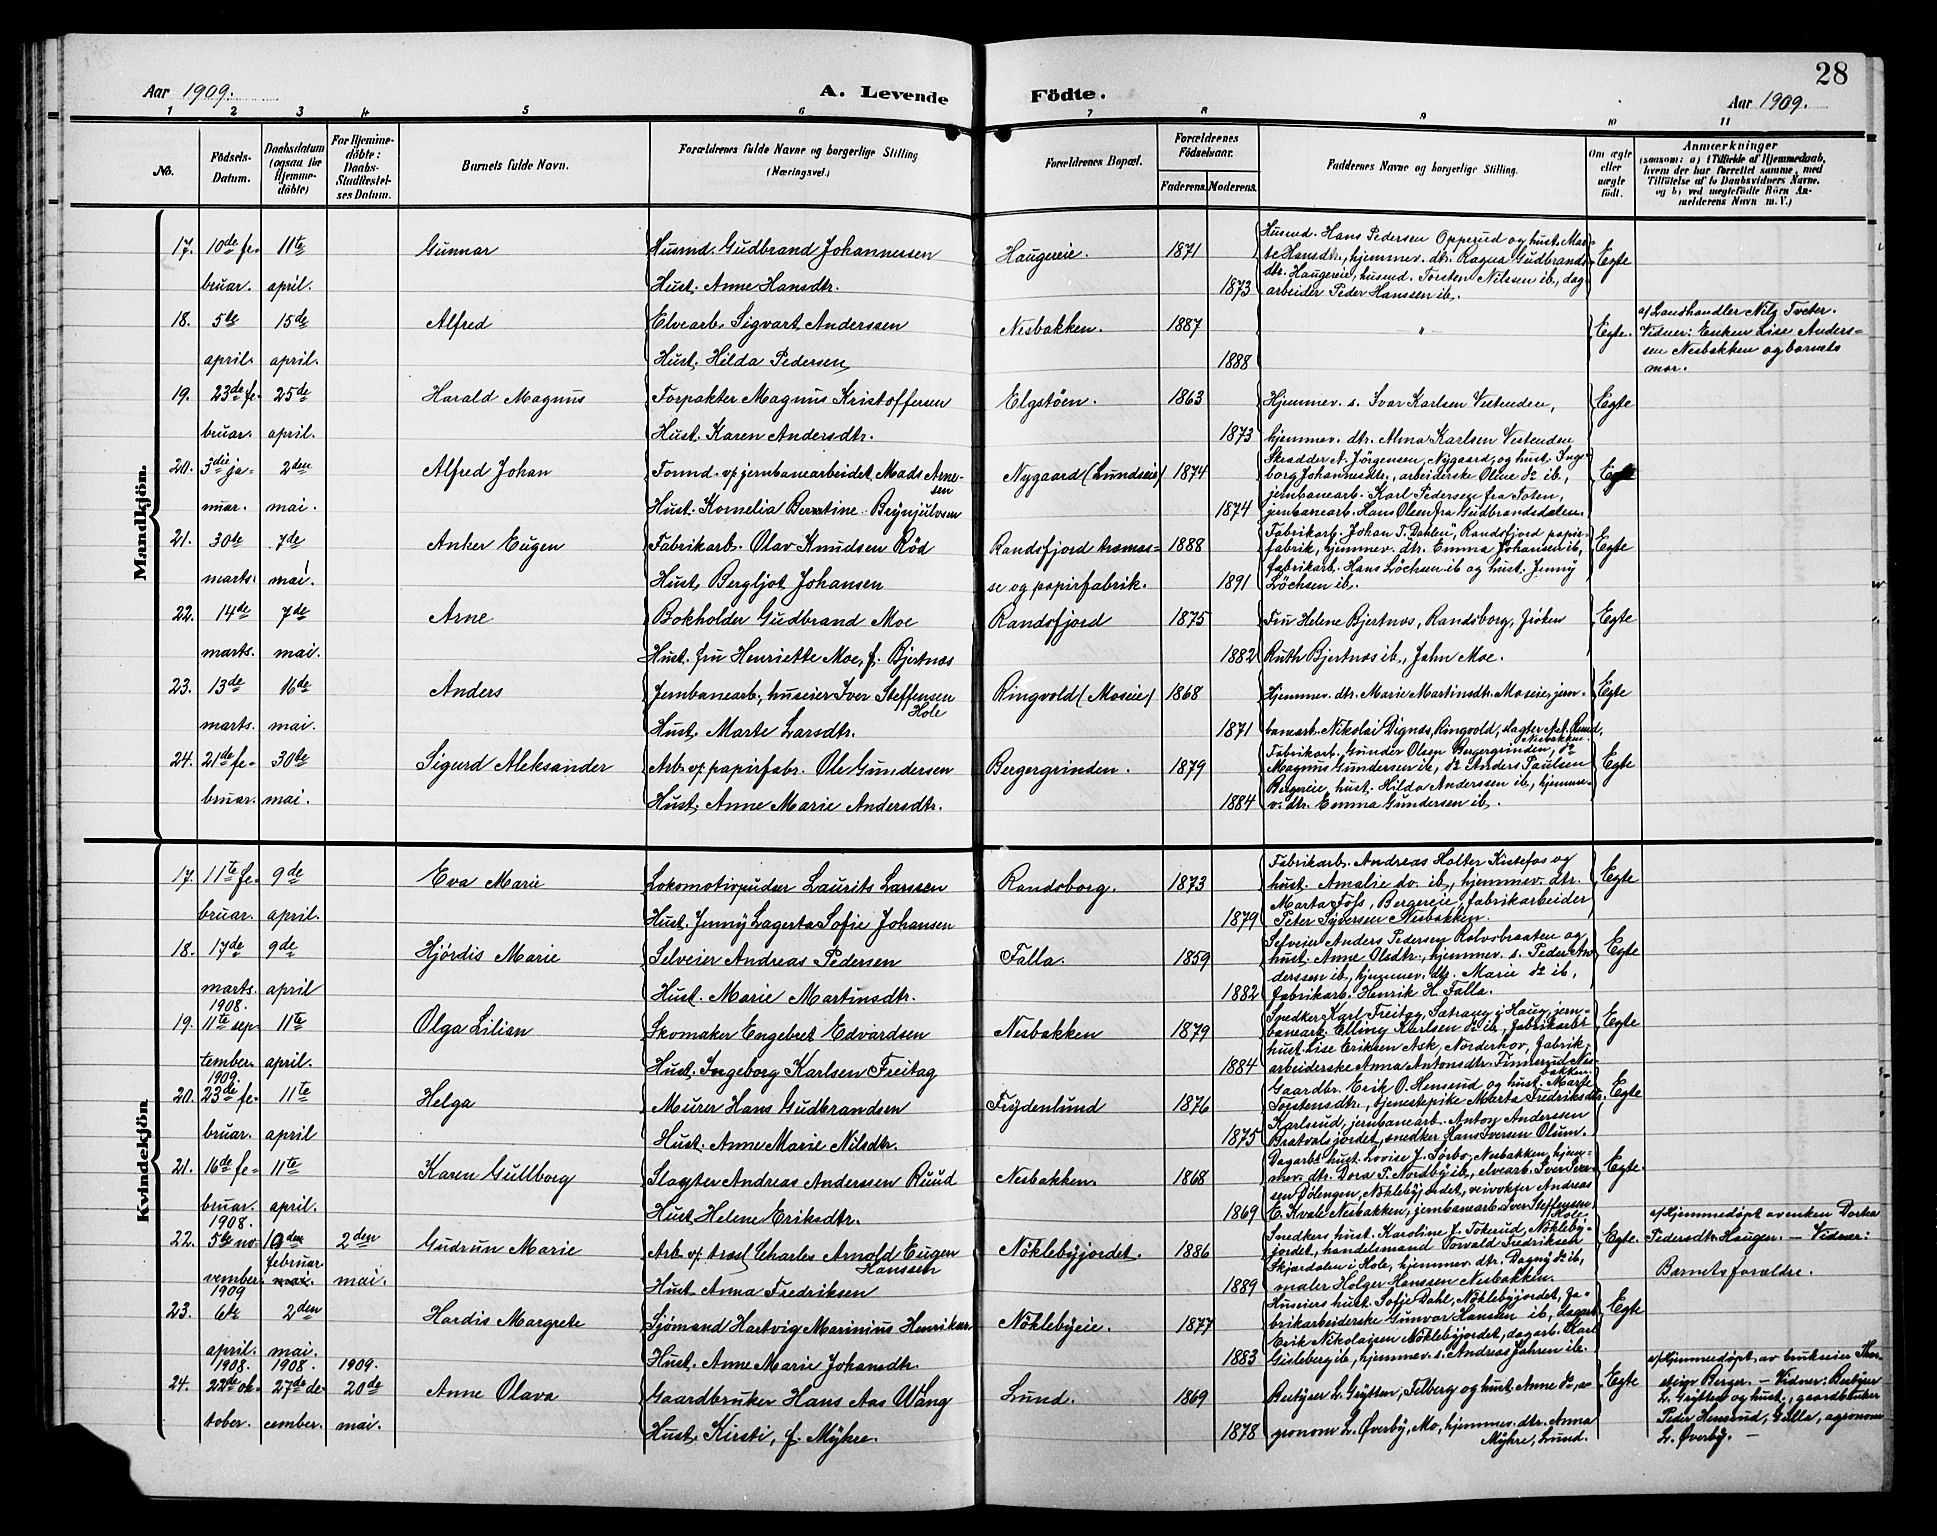 28
Aar 1909.
A. Levende
Födte.
Aar 1909.
1 2 3 4 5 6 7 8 9 10 11
No.
Födsels-
Datum.
Daabsdatum
(ogsaa for
Hjemme-
döbte)
For Hjemme-
döbte:
Daabs-
Stadfæstel-
ses Datum.
Barnets fulde Navn.
Forældrenes fulde Navne og borgerlige Stilling
(Næringsvei.)
Forældrenes Bopæl.
Forældrenes
Födselsaar.
Faderens. Moderens.
Faddernes Navne og borgerlige Stilling.
Om ægte
eller
uægte
födt.
Anmærkninger
(saasom: a) i Tilfælde af Hjemmedaab,
hvem der har forrettet samme, med
Tilföielse af to Daabsvidners Navne,
og b) ved uægtefödte Börn An-
melderens Navn m. V.)
Mandkjön.
17. 10de fe-
bruar. 11te
april. Gunnar
Husmd. Gudbrand Johannessen
Hust. Anne Hansdtr.
Haugereie. 1871 1873
Husmd. Hans Pedersen Opperud og hust. Mar-
te Hansdtr., hjemmev. dtr. Ragna Gudbrands-
dtr. Haugereie, husmd. Torsten Nilssen ib., dag-
arbeider Peder Hanssen ib.
Egte
18. 5te
april. 15de
april. Alfred
Elvearb. Sigvart Anderssen
Hust. Hilda Pedersen
Nesbakken. 1887 1888
"
Egte.
a/ Landhandler Nils Tveter.
Vidner: Enken Lise Anders-
sen Nesbakken og barnets
mor.
19. 23de fe-
bruar. 25de
april. Harald Magnus
Forpakter Magnus Kristoffersen
Hust. Karen Andersdtr.
Elgstöen. 1863 1873
Hjemmev. s. Ivar Karlsen Vestenden,
hjemmev. dtr. Alma Karlsen Vestenden
Egte
20. 3die ja-
nuar. 2den
mai. Alfred Johan
Formd. v/ jernbanearbeidet Mads Arne-
sen
Hust. Kornelia Berntine Brynjulvsen
Nygaard (Lundseie) 1874 1874
Skrædder A. Jörgensen, Nygaard, og hust. Inge-
borg Johannesdtr., arbeiderske Oline do ib.,
jernbanearb. Karl Pedersen fra Toten,
jernbanearb. Hans Olsen fra Gudbrandsdalen.
Egte
21. 30de
marts. 7de
mai. Anker Eugen
Fabrikarb. Olav Knudsen Röd
Hust. Bergljot Johansen
Randsfjord træmas-
se og papirfabrik. 1888 1891
Fabrikarb. Johan T. Dahlen, Randsfjord papir-
fabrik, hjemmev. dtr. Emma Johansen ib.,
fabrikarb. Hans Löchsen ib og hust. Jenny
Löchsen ib.
Egte
22. 14de
marts. 7de
mai. Arne
Bokholder Gudbrand Moe
Hust. fru Henriette Moe, f. Bjertnæs
Randsfjord 1875 1882
Fru Helene Bjertnæs, Randsborg, fröken
Ruth Bjertnæs ib., John Moe.
Egte
23. 13de
marts. 16de
mai. Anders
Jernbanearb., huseier Iver Steffensen
Hole
Hust. Marte Larsdtr.
Ringvold (Moseie) 1868 1871
Hjemmev. dtr. Marie Martinsdtr. Moseie, jern-
banearb. Nikolai Dignæs, Ringvold, slagter A. A. Ruud,
Nesbakken.
Egte
24. 21de fe-
bruar. 30de
mai. Sigurd Aleksander
Arb. v/ papirfabr. Ole Gundersen
Hust. Anne Marie Andersdtr.
Bergergrinden. 1879 1884
Fabrikarb. Gunder Olsen Bergergrinden, do
Magnus Gundersen ib., do Anders Paulsen
Bergereie, hust. Hilda Anderssen ib., hjemme-
v. dtr. Emma Gundersen ib.
Egte
Kvindekjön
17. 11te fe-
bruar. 9de
april. Eva Marie
Lokomotivpudser Laurits Larssen
Hust. Jenny Lagerta Sofie Johansen
Randsborg. 1873 1879
Fabrikarb. Andreas Holter Kistefos og
hust. Amalie do. ib., hjemmev. dtr.
Marta Foss, Bergereie, fabrikarbeider
Peter Syversen Nesbakken.
Egte
18. 17de
marts. 9de
april Hjørdis Marie
Selveier Andreas Pedersen
Hust. Marie Martinsdtr.
Falla. 1859 1882
Selveier Anders Pedersen Rolvsbraaten og
hust. Anne Olsdtr., hjemmev. s. Peder An-
derssen ib., hjemmev. dtr. Marie do ib.,
fabrikarb. Henrik H. Falla.
Egte
1908.
19. 11te sep-
tember. 11te
april. Olga Lilian
Skomaker Engebret Edvardsen
Hust. Ingeborg Karlsen Freitag
Nesbakken 1879 1884
Snedker Karl Freitag, Sætrang i Haug, jern-
banearb. Elling Karlsen do ib., fabrikarbs
hust. Lise Eriksen Ask, Norderhov, fabrik-
arbeiderske Anna Antonsdtr. Finnerud Nes-
bakken.
Egte
1909.
20. 23de fe-
bruar. 11te
april Helga
Murer Hans Gudbrandsen
Hust. Anne Marie Nilsdtr.
Frydenlund 1876 1875
Gaardbr. Erik O. Hensrud og hust. Marte
Torstensdtr., tjenestepike Marta Fredriksdtr.
Karlsrud, jernbanearb. Anton Anderssen
Bratvalsjordet, snedker Hans Iversen Olum.
Egte
21. 16de fe-
bruar. 11te
april. Karen Gullborg
Slagter Andreas Anderssen Ruud
Hust. Helene Eriksdtr.
Nesbakken. 1868 1869
Dagarbs hust. Lovise J. Sörbo, Nesbakken, hjem-
mev. dtr. Dora P. Nordby ib., elvearb. Iver Iver-
sen Dölengen, Nöklebyjordet, veivokter Andreas
E. Kvale Nesbakken, jernbanearb. Iver Steffensen
Hole.
Egte.
1908.
22. 5te no-
vember. 10den
februar
mai. 2den
mai. Gudrun Marie
Arb. v/ træsl. Charles Arnold Eugen
Hanssen
Hust. Anna Fredriksen
Nöklebyjordet. 1886 1889
Snedkers hust. Karoline J. Tokerud, Nökleby-
jordet, handelsmand Torvald Fredriksen
Skjærdalen i Hole, hjemmev. dtr. Dagny do ib.,
maler Holger Hanssen Nesbakken.
Egte.
a/ Hjemmedøpt av enken Dorthea
Pedersdtr. Hauger. — Vidner:
Barnets forældre.
1909
23. 6te
april. 2den
mai. Hardis Margrete
Sjömand Hartvig Marinius Henriksen
Hust. Anne Marie Johansdtr.
Nöklebyeie. 1877 1883
Huseiers hust. Sofie Dahl, Nöklebyjordet, fa-
brikarbeiderske Gunvor Hansen ib., dagarb.
Erik Nikolaisen Nöklebyjordet, dagarb. Karl
Gisleberg ib., hjemmev. s. Andreas Jahren ib.
Egte
1908. 1908. 1909.
24. 22de ok-
tober. 27de de-
cember. 20de
mai. Anne Olava
Gaardbruker Hans Aas Wang
Hust. Kirsti, f. Myhre.
Lund. 1869 1878
Bestyrer L. Grytten, Felberg og hust. Anne do, a-
gronom L. Øverby, Mo, hjemmev. dtr. Anna
Myhre, Lund.
Egte
a/ Hjemmedøpt av brukseier Thor-
Berger. — Vidner: Bestyrer
L. Grytten og hust., gaardbruker
Peder Hensrud, Galla, agronom
L. Øverby. —